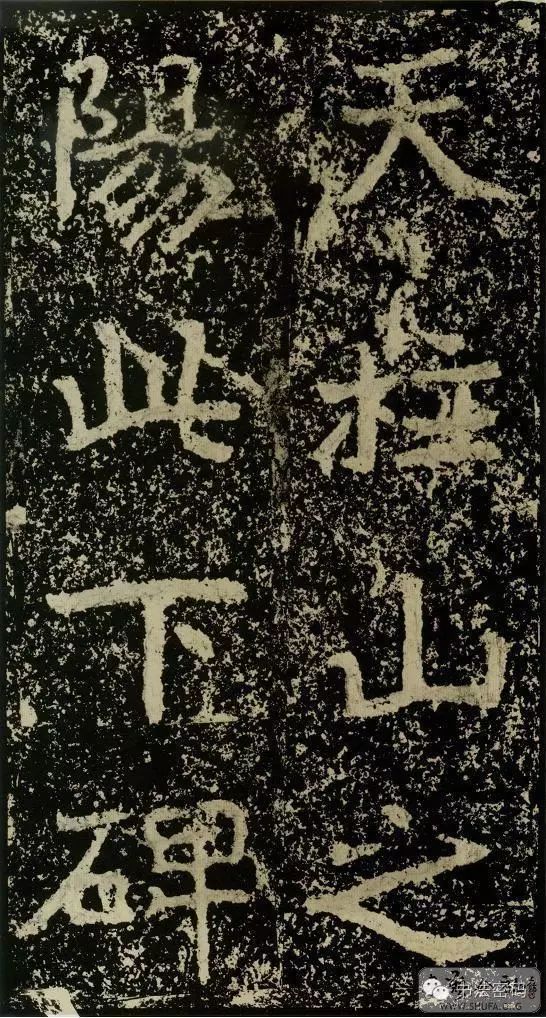 天柱山之
陽此下碑
书法密码
WWW.SHUFA.ORG